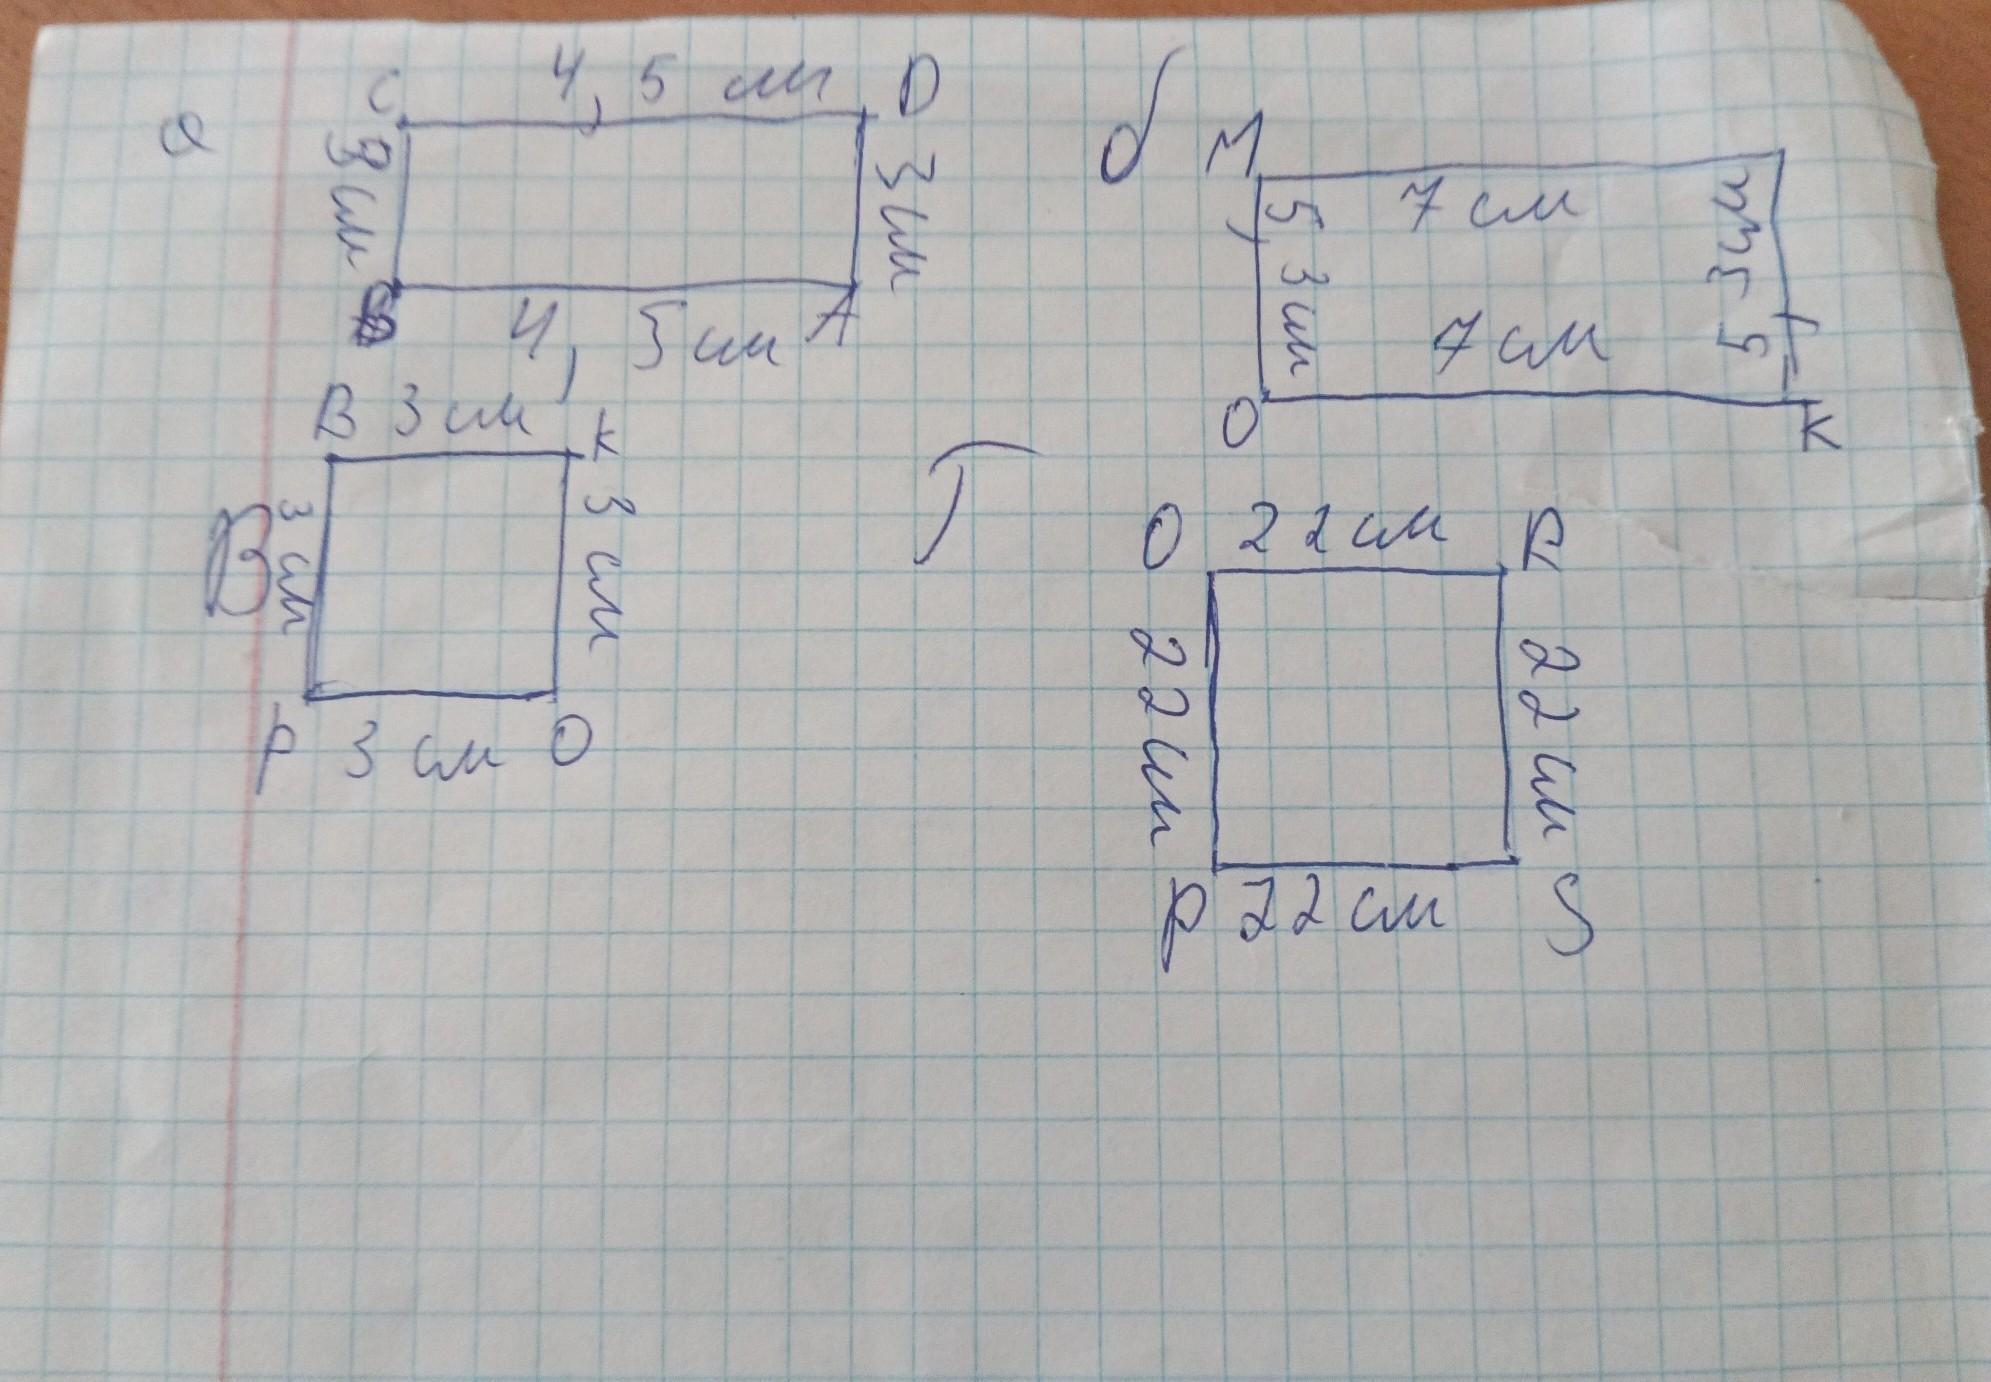 а
C 4,5 см D
3 см
3 см
B 4,5 см A
б
M
7 см
5,3 см
5,3 см
7 см
O K
В
B 3 см K
3 см
3 см
P 3 см O
Г
O 22 см R
22 см
22 см
P 22 см S